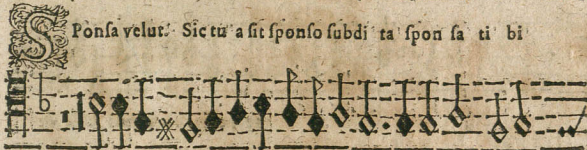 SPonſa velut. Sic tu a ſit ſponſo ſubdi ta ſpon ſa ti bi